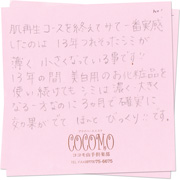 肌再生コースを終えて今で一番実感
したのは 13年つきあったシミが
薄く 小さくなっている事です!
13年の間 美白用のお化粧品を
使い続けてもシミは濃く・大きく
なる一方なのに3ヶ月で確実に
効果がでて ほんとびっくりです。
COCOMO